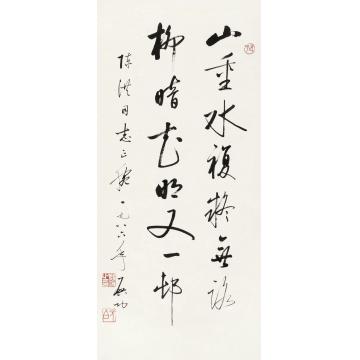 山重水複疑無路
柳暗花明又一邨
陈洪同志正雅一九八六年启功